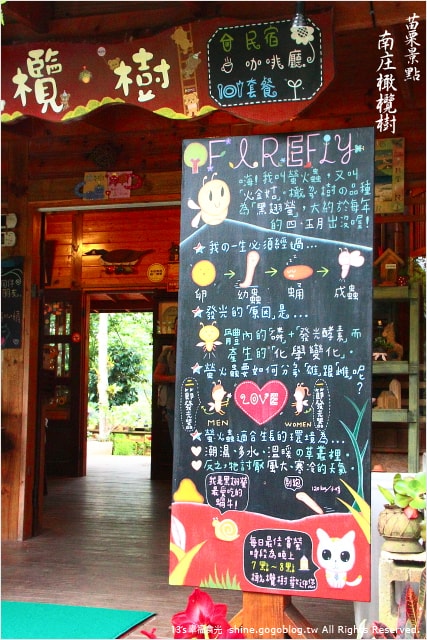 苗栗景點
南庄橄欖樹
欖樹
民宿
咖啡廳
套餐
FIREFLY
嗨!我叫螢火蟲,又叫
「火金姑」,橄欖樹的品種
為「黑翅螢」,大約於每年
的四、五月出沒喔!
★我の一生必須經過...
卵 幼蟲 蛹 成蟲
★發光的「原因」是...
體內的磷+發光酵素而
產生的「化學變化」。
★螢火蟲要如何分爭雄跟雌呢?
LOVE
MEN WOMEN
★螢火蟲適合生長的環境為...
潮濕、多水、溫暖の草叢裡。
反之,牠討厭風大、寒冷的天氣。
我是黑翅螢
最愛吃的
蝸牛!
別跑
每日最佳賞螢
時段為晚上
7點~8點
橄欖樹歡迎您
13's幸福食光 shine.gogoblog.tw All Rights Reserved.